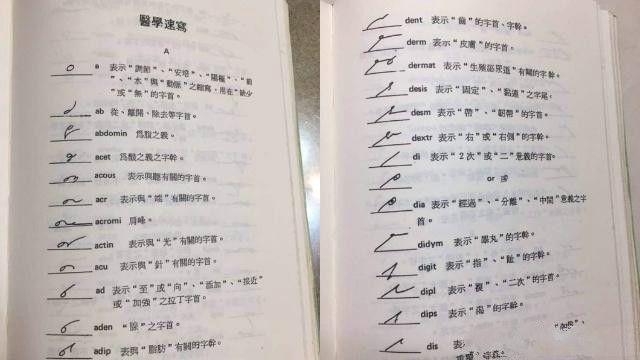 醫學速寫
A
a 表示“調節”、“安培”、“陽極”、“前
”、“水”與“動脈”之縮寫，用在“缺少
”或“無”的字首。
ab 從、離開、除去等字首。
abdomin 爲腹之義。
acet 爲醋之義之字幹。
acous 表示與聽有關的字首。
acr 表示與“端”有關的字首。
acromi 肩峰。
actin 表示與“光”有關的字首。
acu 表示與“針”有關的字首。
ad 表示“至”或“向”、“添加”、“接近”
或“加強”之拉丁字首。
aden “腺”之字首。
adip 表與“脂肪”有關的字幹。
dent 表示“齒”的字首、字幹。
derm 表示“皮膚”的字首。
dermat 表示“生殖泌尿道”有關的字幹。
desis 表示“固定”、“黏連”之字尾。
desm 表示“帶”、“韌帶”的字首。
dextr 表示“右”或“右側”的字幹。
di 表示“2次”或“二”意義的字首。
or 或
dia 表示“經過”、“分離”、“中間”意義之字
首。
didym 表示“睪丸”的字幹。
digit 表示“指”、“趾”的字幹。
dipl 表示“複”、“二次”的字首。
dips 表示“渴”的字幹。
dis 表